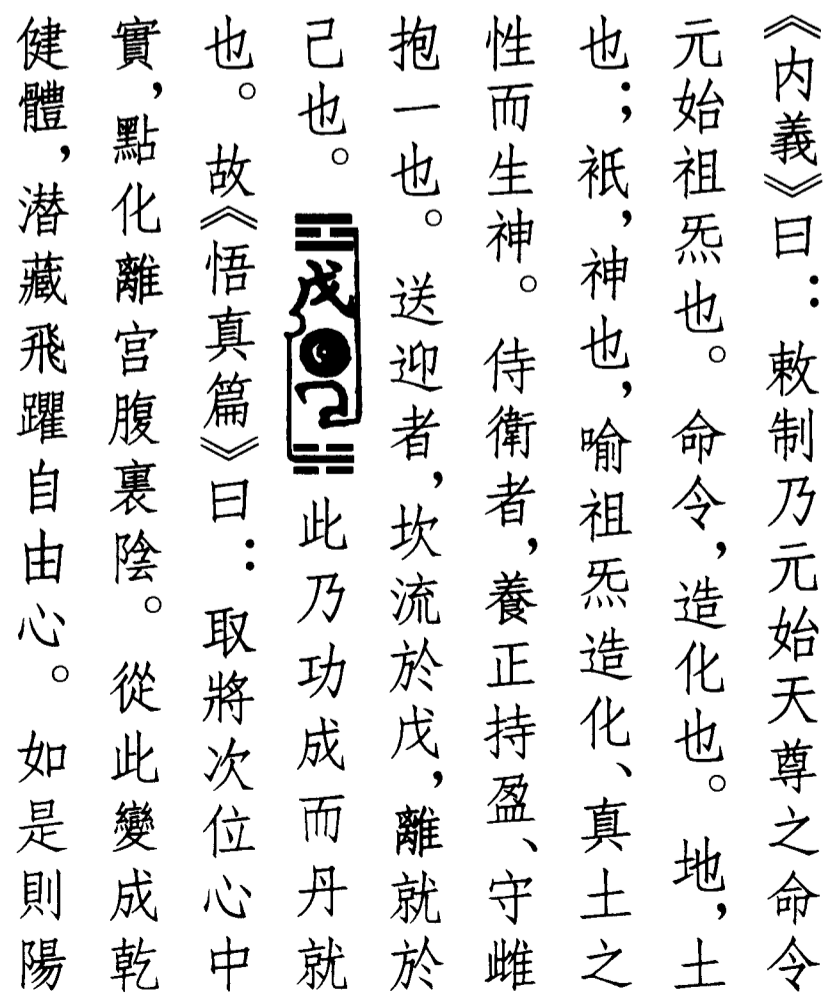 《内義》曰：敕制乃元始天尊之命令
元始祖炁也。命令，造化也。地，土
也；祇，神也，喻祖炁造化、真土之
性而生神。侍衛者，養正持盈、守雌
抱一也。送迎者，坎流於戊，離就於
己也。戊己此乃功成而丹就
也。故《悟真篇》曰：取將次位心中
實，點化離宫腹裏陰。從此變成乾
健體，潛藏飛躍自由心。如是則陽